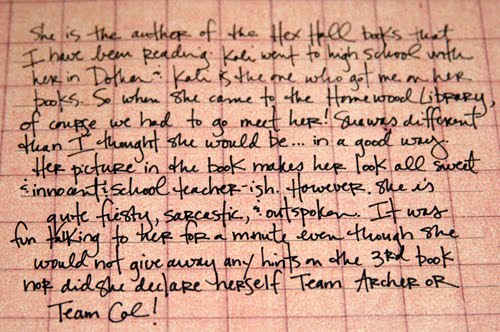 She is the author of the Hex Hall books that
I have been reading. Kali went to high school with
her in Dothan. Kali is the one who got me on her
books. So when she came to the Homewood Library,
of course we had to go meet her! She was different
than I thought she would be... in a good way.
Her picture in the book makes her look all sweet
& innocent & school teacher-ish. However, she is
quite fiesty, sarcastic, & outspoken. It was
fun talking to her for a minute even though she
would not give away any hints on the 3rd book
nor did she declare herself Team Archer OR
Team Cal!